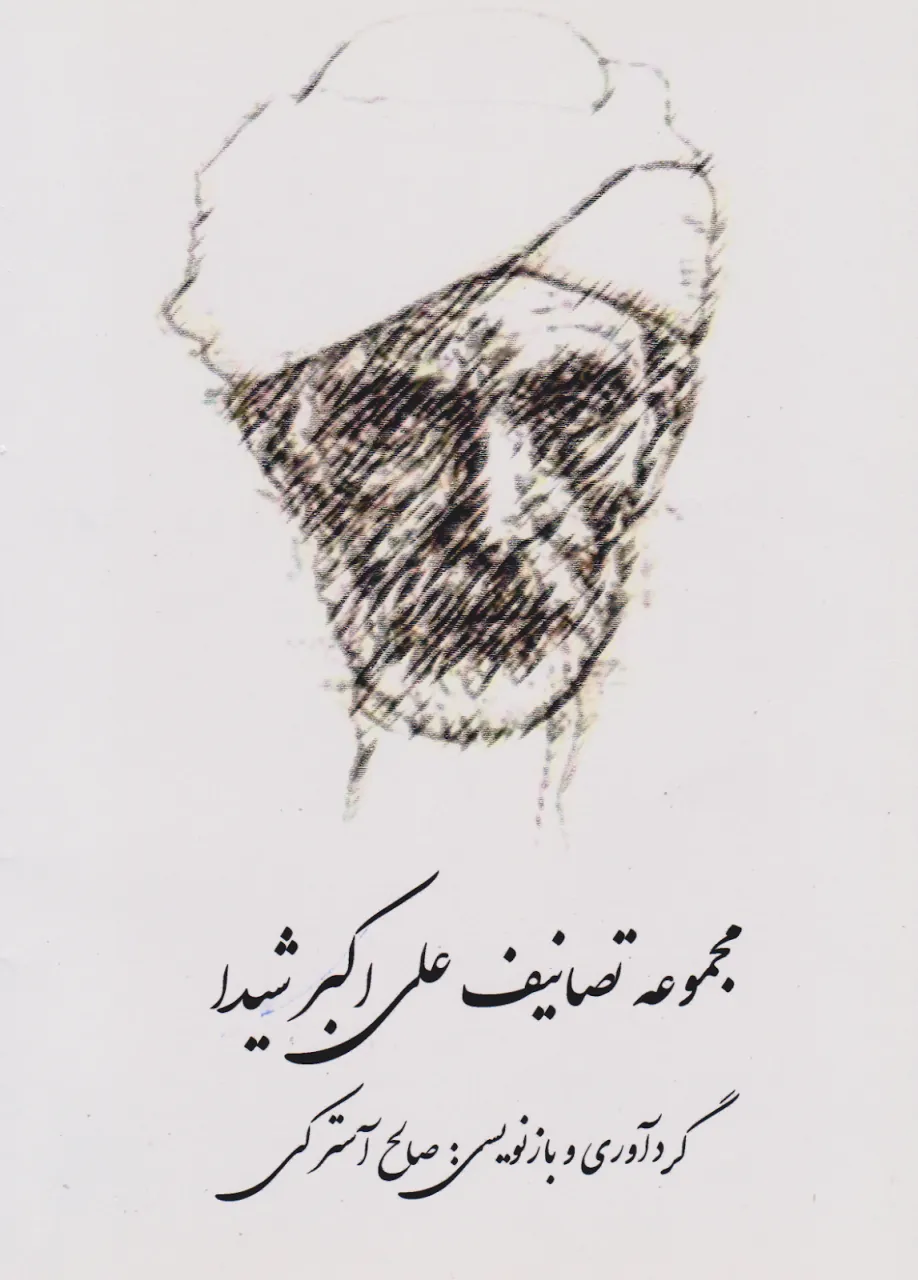 مجموعه تصانیف علی اکبر شیدا
گردآوری و بازنویسی: صالح آسترکی